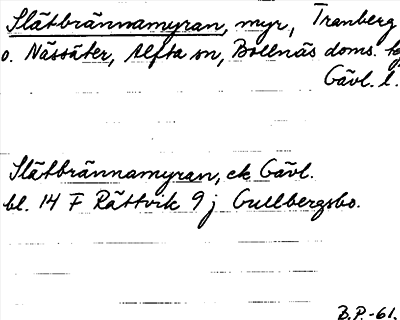 Slätbrännamyran, myr, Tranberg
o. Nässäter, Alfta sn, Bollnäs doms.
Gävl. l.
Slätbrännamyran, ek Gävl.
bl. 14 F Rättvik 9 j Gullbergsbo.
B.P.-61.